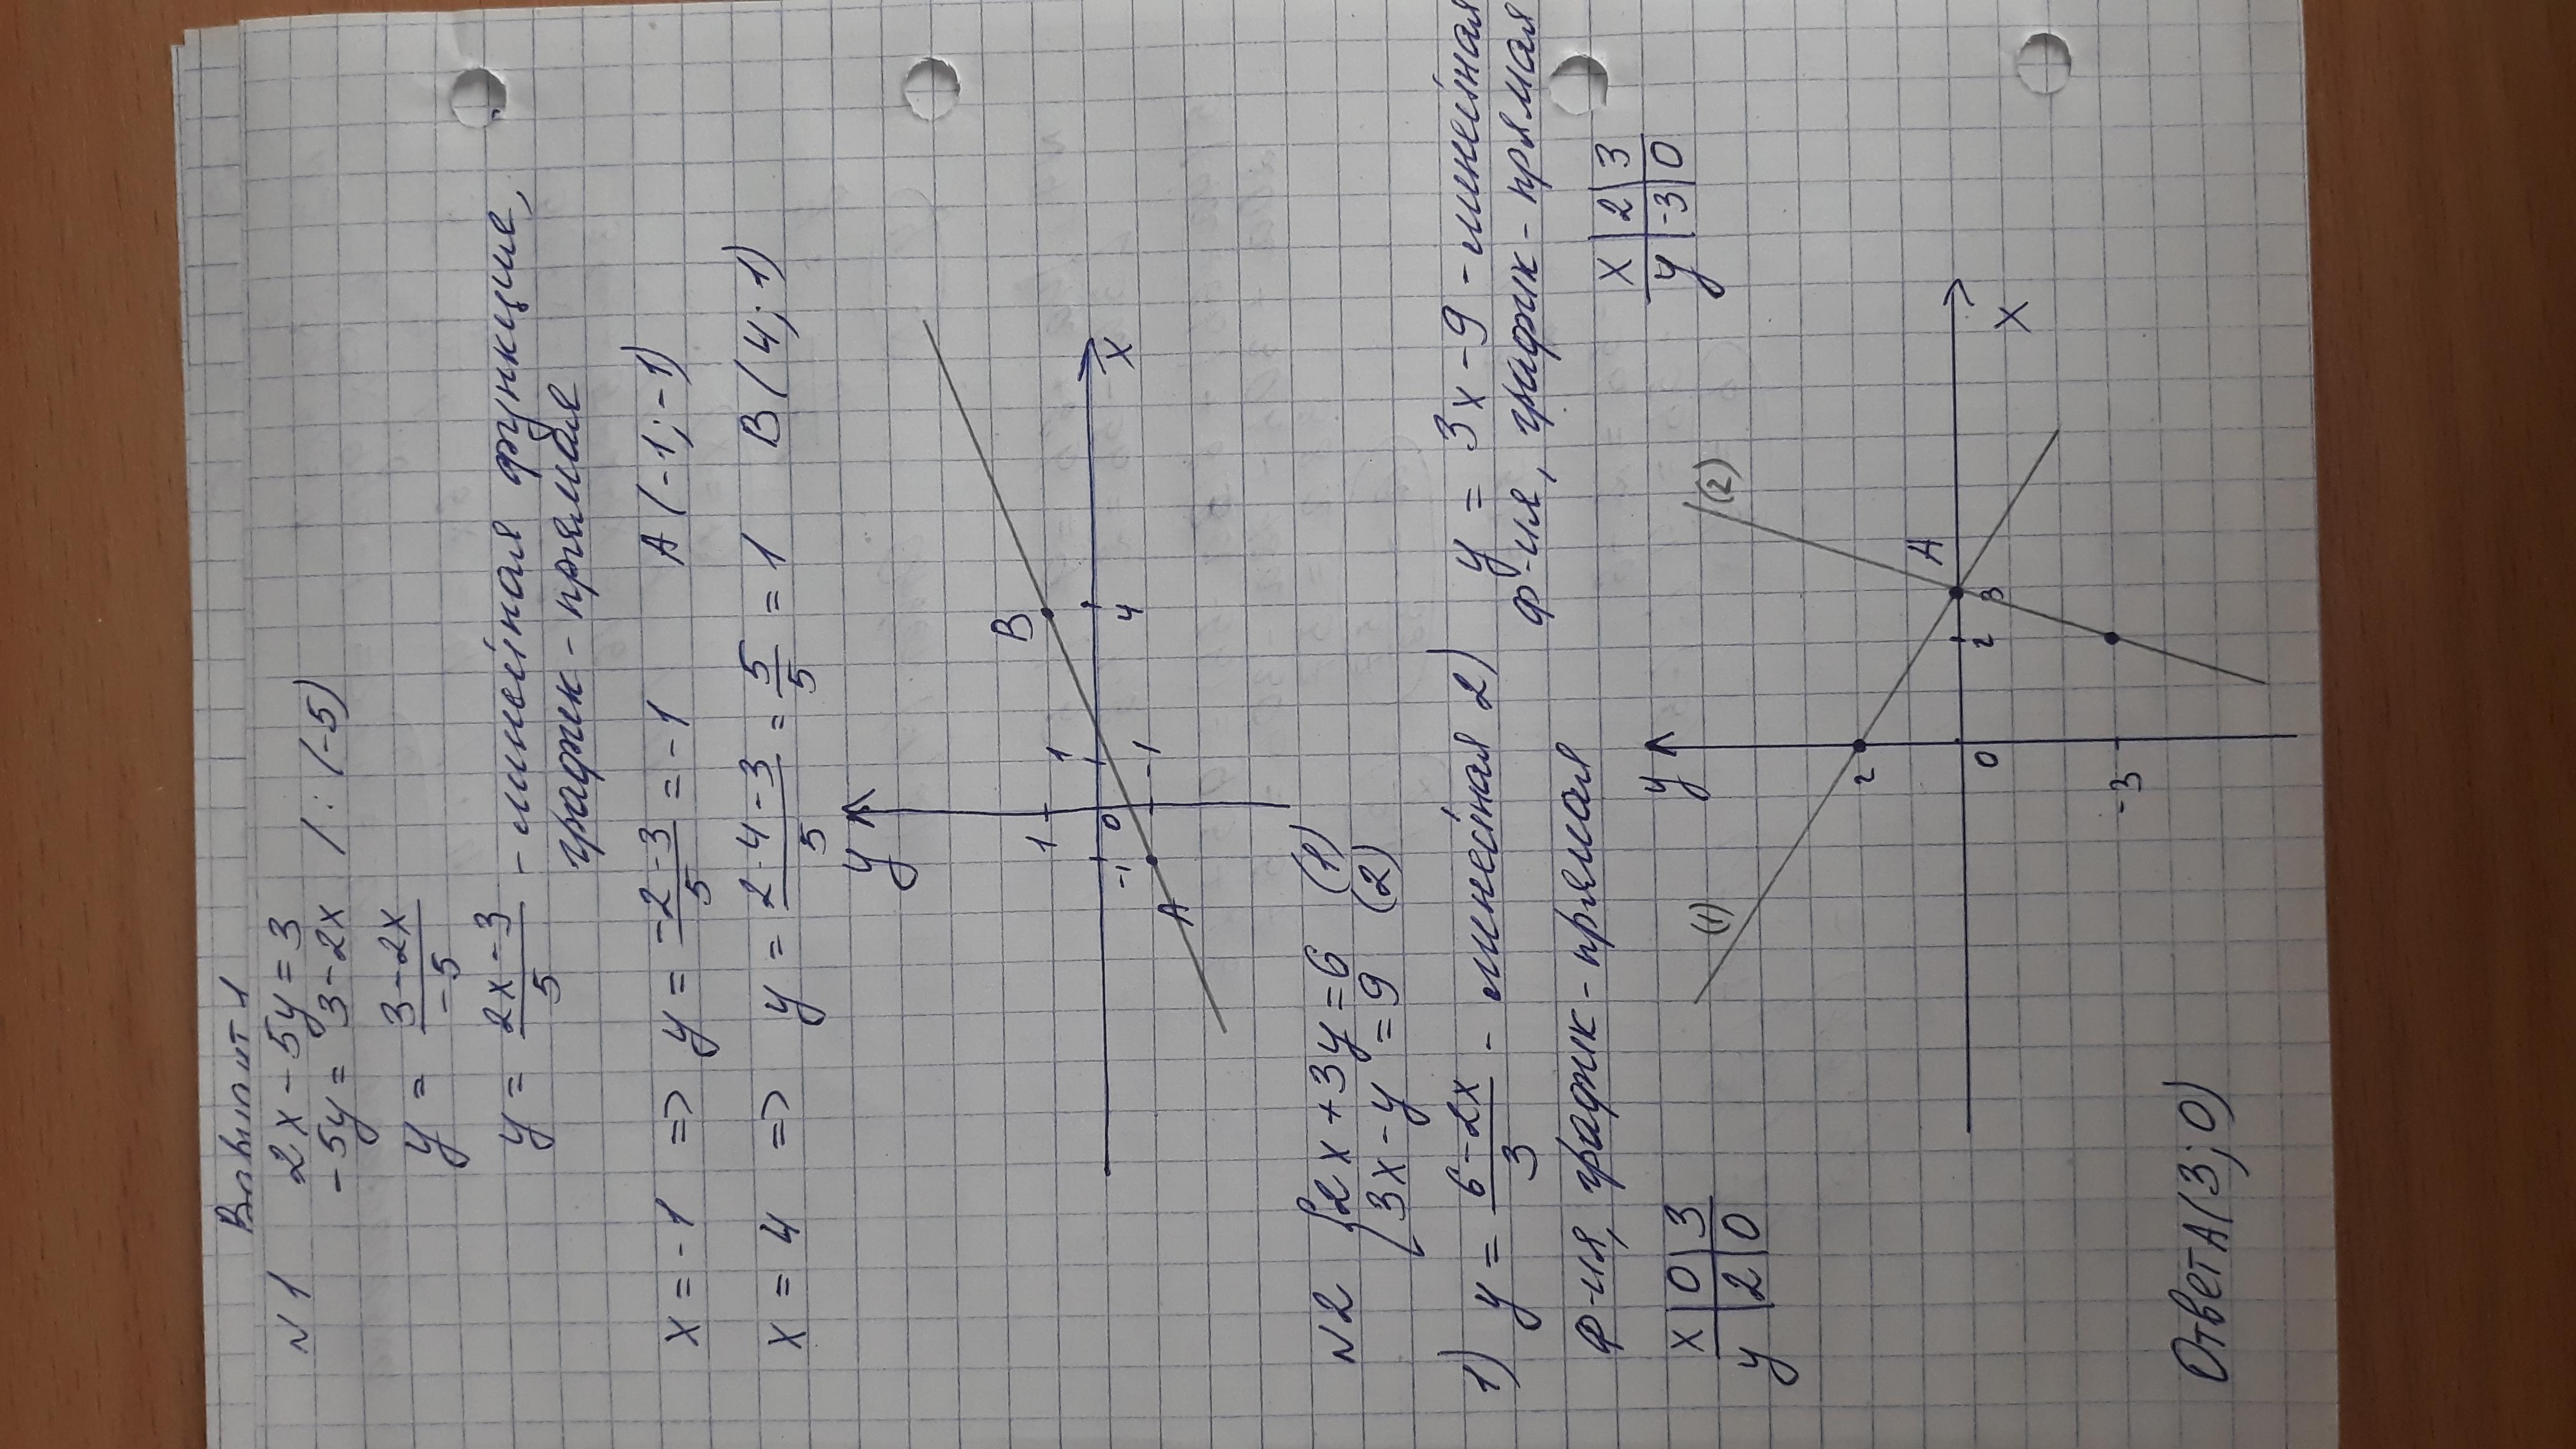 Вариант 1
N1 2x - 5y = 3
-5y = 3 - 2x / : (-5)
y = (3 - 2x)/(-5)
y = (2x - 3)/5 - линейная функция,
график - прямая
x = -1 => y = (-2 - 3)/5 = -1 A (-1; -1)
x = 4 => y = (2·4 - 3)/5 = 5/5 = 1 B (4; 1)
y
B
1
-1 0 1 4 x
-1
A
N2 { 2x + 3y = 6 (1)
3x - y = 9 (2)
1) y = (6 - 2x)/3 - линейная 2) y = 3x - 9 - линейная
ф-ия, график - прямая ф-ия, график - прямая
x | 0 | 3 x | 2 | 3
y | 2 | 0 y | -3 | 0
(1) y (2)
2
A
0 2 3 x
-3
Ответ A(3; 0)